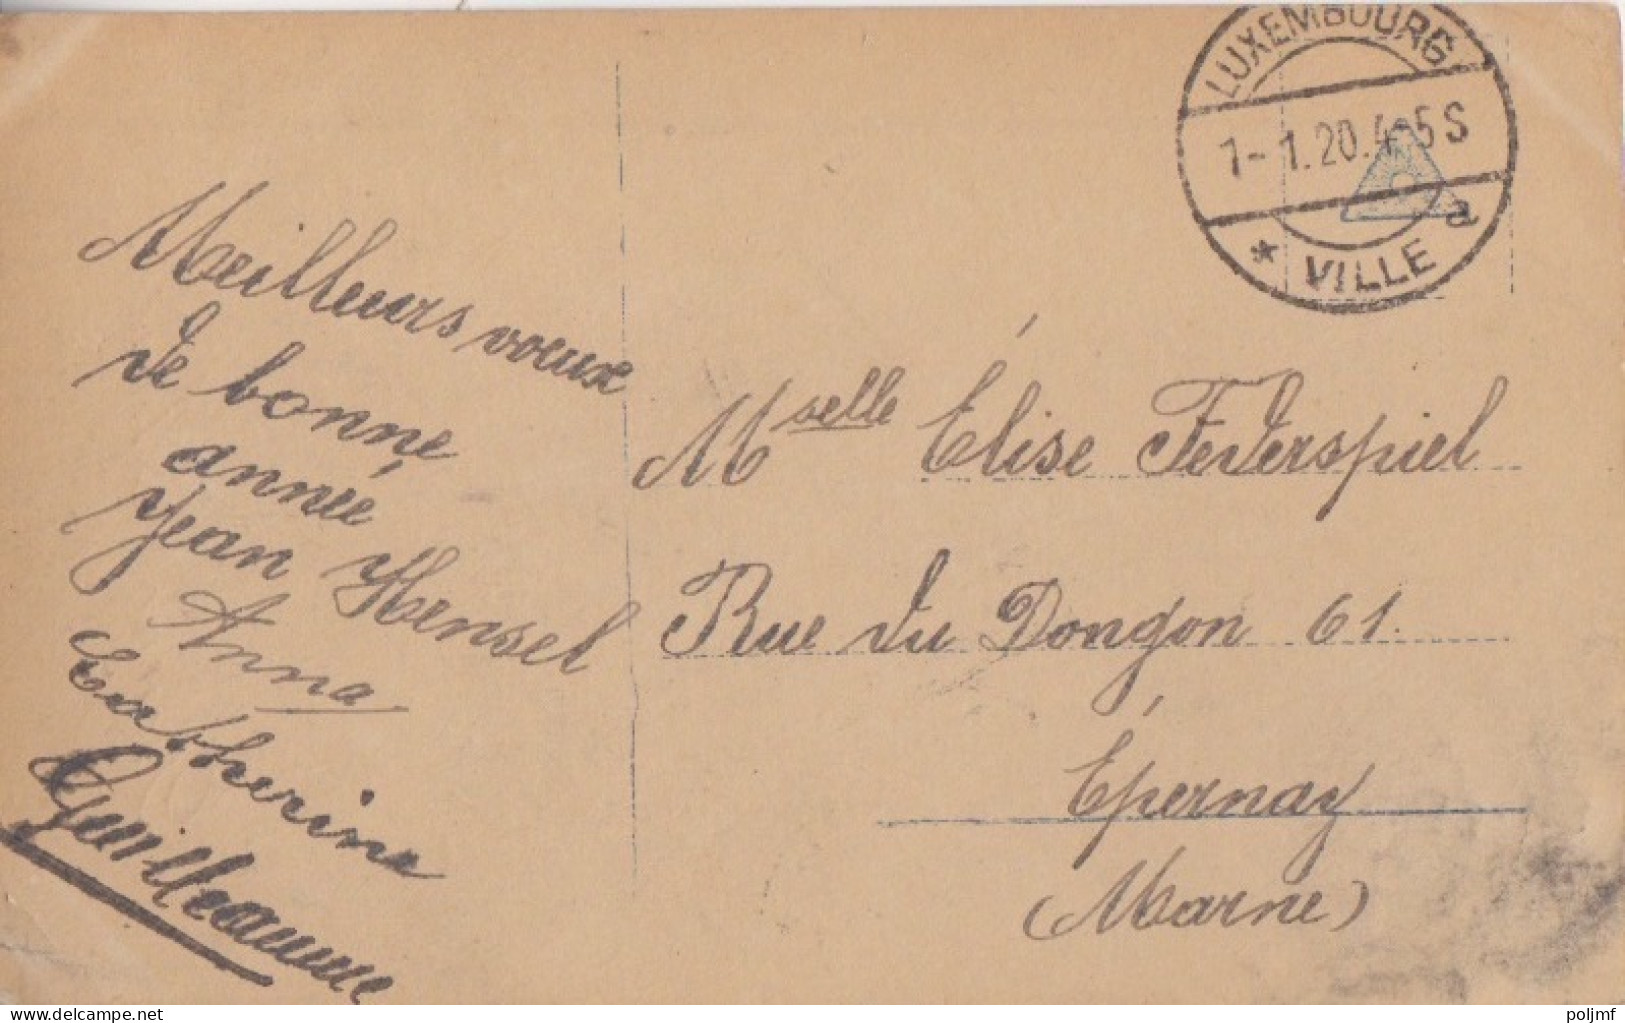 LUXEMBOURG
1-1.20.4-5S
* VILLE a
Meilleurs vœux
de bonne
année
Jean Hensel
Anna
Catherine
Guilleaume
Mselle Élise Federspiel
Rue du Dongon 61.
Épernay
(Marne)
delcampe.net
poljmf